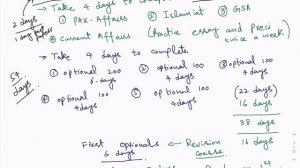 → Take 4 days to
① PAK-Affairs ② Islamiat ③ GSA
④ Current Affairs (Practice essay and Preci
twice a week)
2 days
1 day
→ Take 4 days to complete
① optional 200 ② optional 100 ③ optional 100
6 days 4 days 4 days
④ optional 100 ⑤ optional 100 (22 days)
4 days 4 days 16 days
54 days
38 days
First Optionals ← Revision 16 days
6 days course